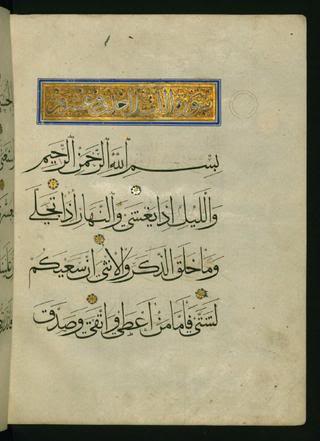 سورة الليل احدى وعشرون
بسم الله الرحمن الرحيم
والليل اذا يغشى والنهار اذا تجلى
وما خلق الذكر والانثى ان سعيكم
لشتى فاما من اعطى واتقى وصدق